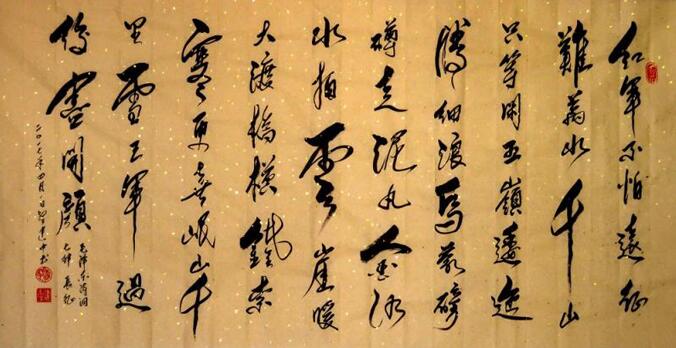 紅軍不怕遠征
難萬水千山
只等閑五嶺逶迤
騰細浪烏蒙磅
礴走泥丸金沙
水拍雲崖暖
大渡橋橫鐵索
寒更喜岷山千
里雪三軍過
後盡開顏
毛澤東詩詞
七律長征
二〇一七年四月